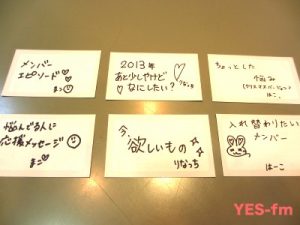 メンバー
エピソード♡
まこ
2013年
あと少しやけど
なにしたい?
りなっち
ちょっとした
悩み
はーこ
悩んでる人に
応援メッセージ
まこ
今、
欲しいもの
りなっち
入れ替わりたい
メンバー
はーこ
YES-fm